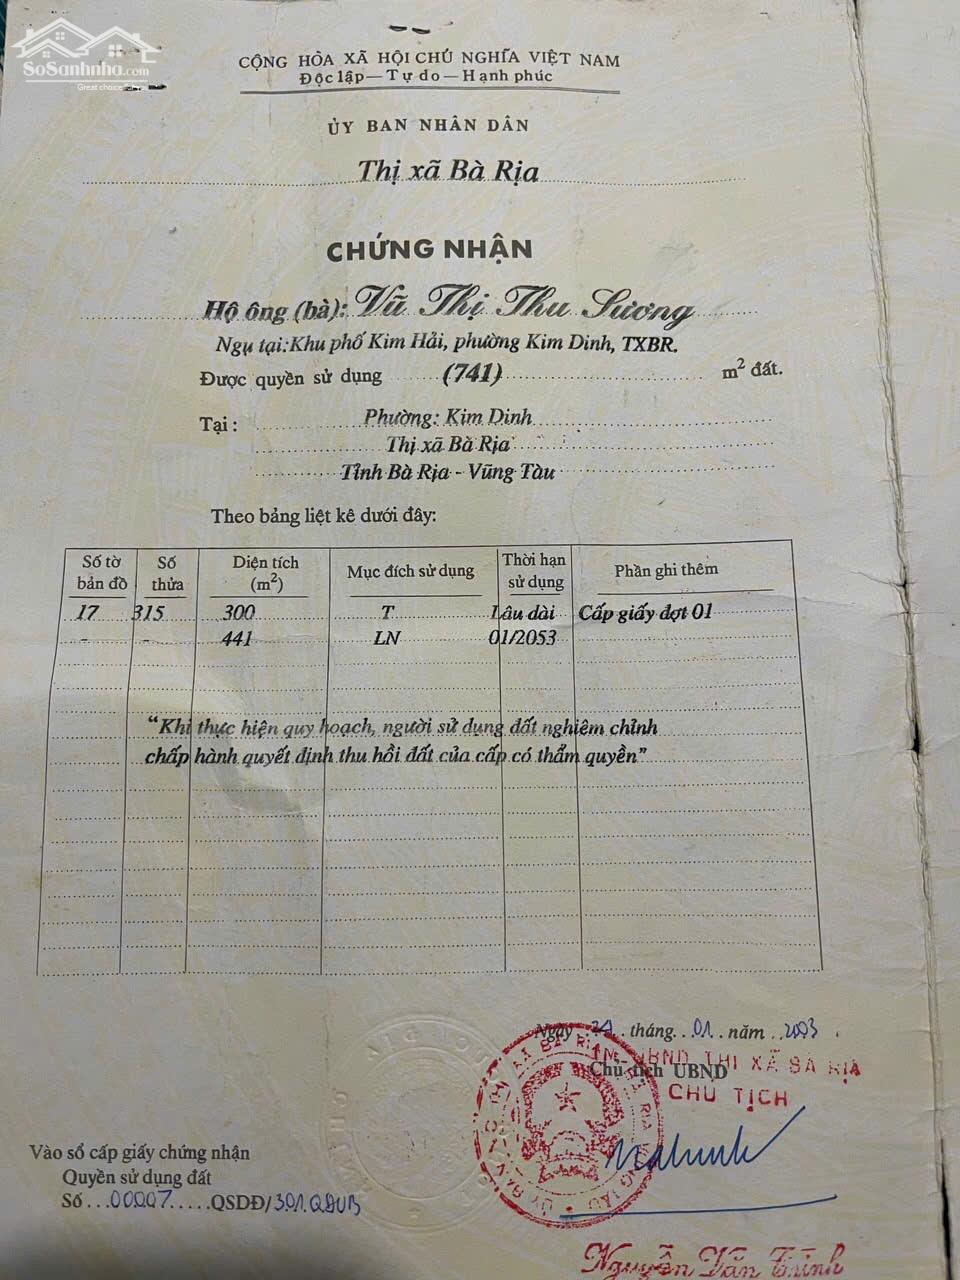 SoSanhnha.com
CỘNG HÒA XÃ HỘI CHỦ NGHĨA VIỆT NAM
Độc lập — Tự do — Hạnh phúc
ỦY BAN NHÂN DÂN
Thị xã Bà Rịa
CHỨNG NHẬN
Hộ ông (bà): Vũ Thị Thu Sương
Ngụ tại: Khu phố Kim Hải, phường Kim Dinh, TXBR.
Được quyền sử dụng (741) m² đất.
Tại : Phường: Kim Dinh
Thị xã Bà Rịa
Tỉnh Bà Rịa - Vũng Tàu
Theo bảng liệt kê dưới đây:
Số tờ bản đồ Số thửa Diện tích (m²) Mục đích sử dụng Thời hạn sử dụng Phần ghi thêm
17 315 300 T Lâu dài Cấp giấy đợt 01
- - 441 LN 01/2053
“Khi thực hiện quy hoạch, người sử dụng đất nghiêm chỉnh
chấp hành quyết định thu hồi đất của cấp có thẩm quyền”
Ngày tháng 01 năm 2003
TM. UBND THỊ XÃ BÀ RỊA
Chủ tịch UBND
CHỦ TỊCH
Vào sổ cấp giấy chứng nhận
Quyền sử dụng đất
Số 00007 QSDĐ/
Nguyễn Văn Trình